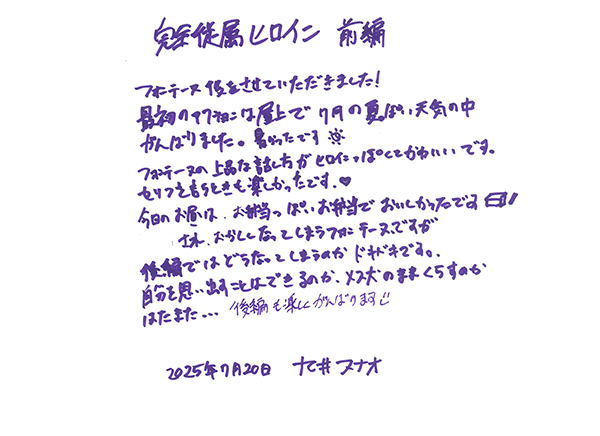 完全従属ヒロイン 前編
フォンテーヌ役をさせていただきました!
最初のアクションは屋上で7月の夏っぽい天気の中
がんばりました。暑かったです
フォンテーヌの上品な話し方がヒロインっぽくてかわいいです。
セリフを言うときも楽しかったです。♥
今日のお昼は、お弁当っぽいお弁当でおいしかったです
おかしくなってしまうフォンテーヌですが
後編ではどうなってしまうのかドキドキです。
自分を思い出すことはできるのか、メス犬のままくらすのか
はたまた... 後編も楽しくがんばります
2025年7月20日 スナオ